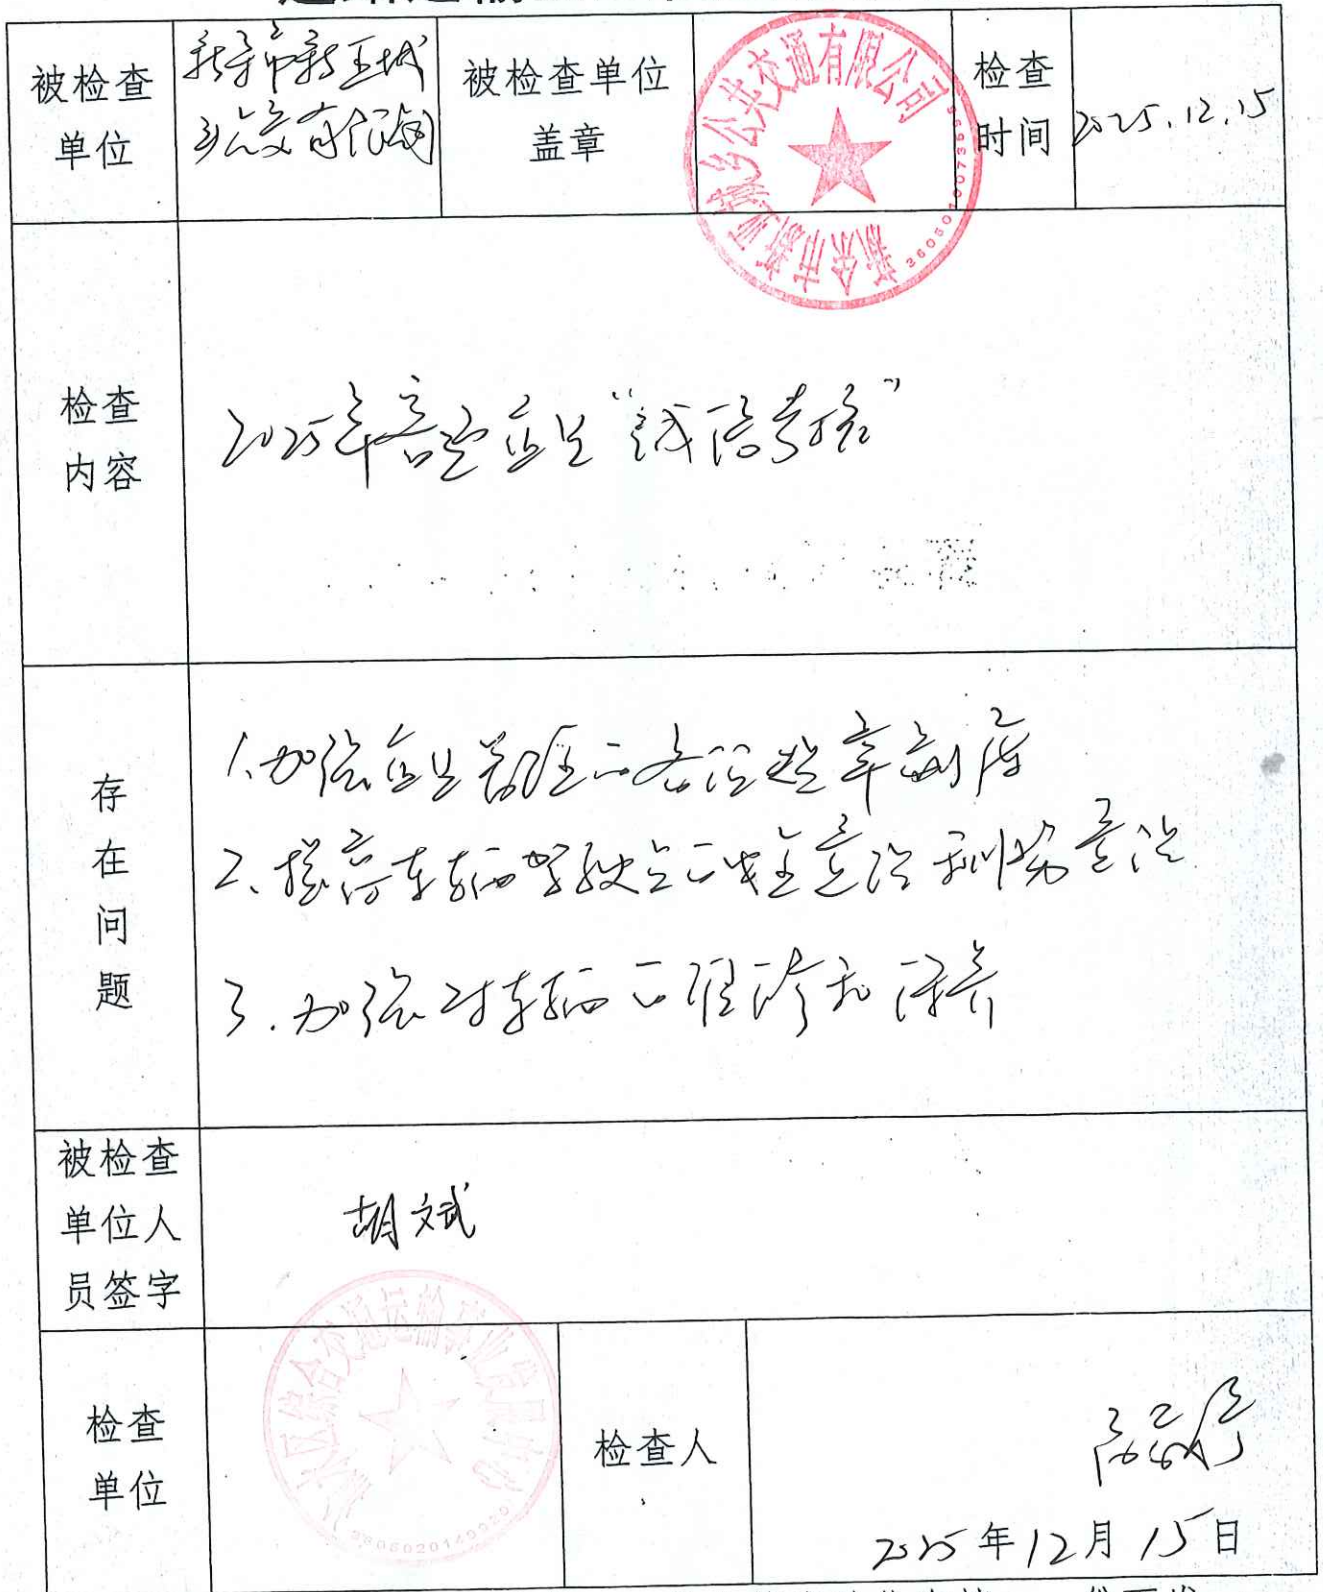 被检查
单位
新余市新亚城
乡公交有限公司
被检查单位
盖章
新余市新亚城乡公共交通有限公司
检查
时间
2025.12.15
检查
内容
2025年客运企业“诚信考核”
存
在
问
题
1.加强企业管理的各项规章制度
2、提高车辆驾驶员的安全意识和服务意识
3.加强对车辆的维修和保养
被检查
单位人
员签字
胡文斌
检查
单位
综合交通运输事业发展中心
检查人
2025年12月15日